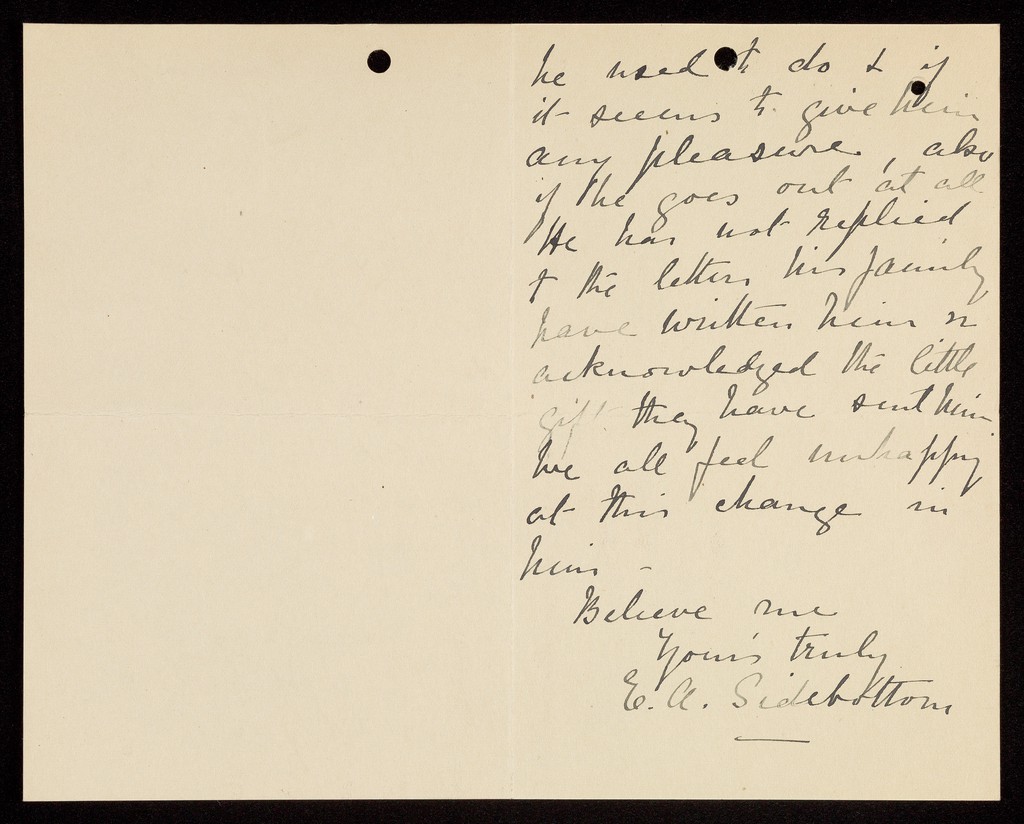 he used to do & if
it seems to give him
any pleasure, also
if he goes out at all
He has not replied
to the letters his family
have written him or
acknowledged the little
gift they have sent him
We all feel unhappy
at this change in
him -
Believe me
Your's truly
E. A. Sidebottom